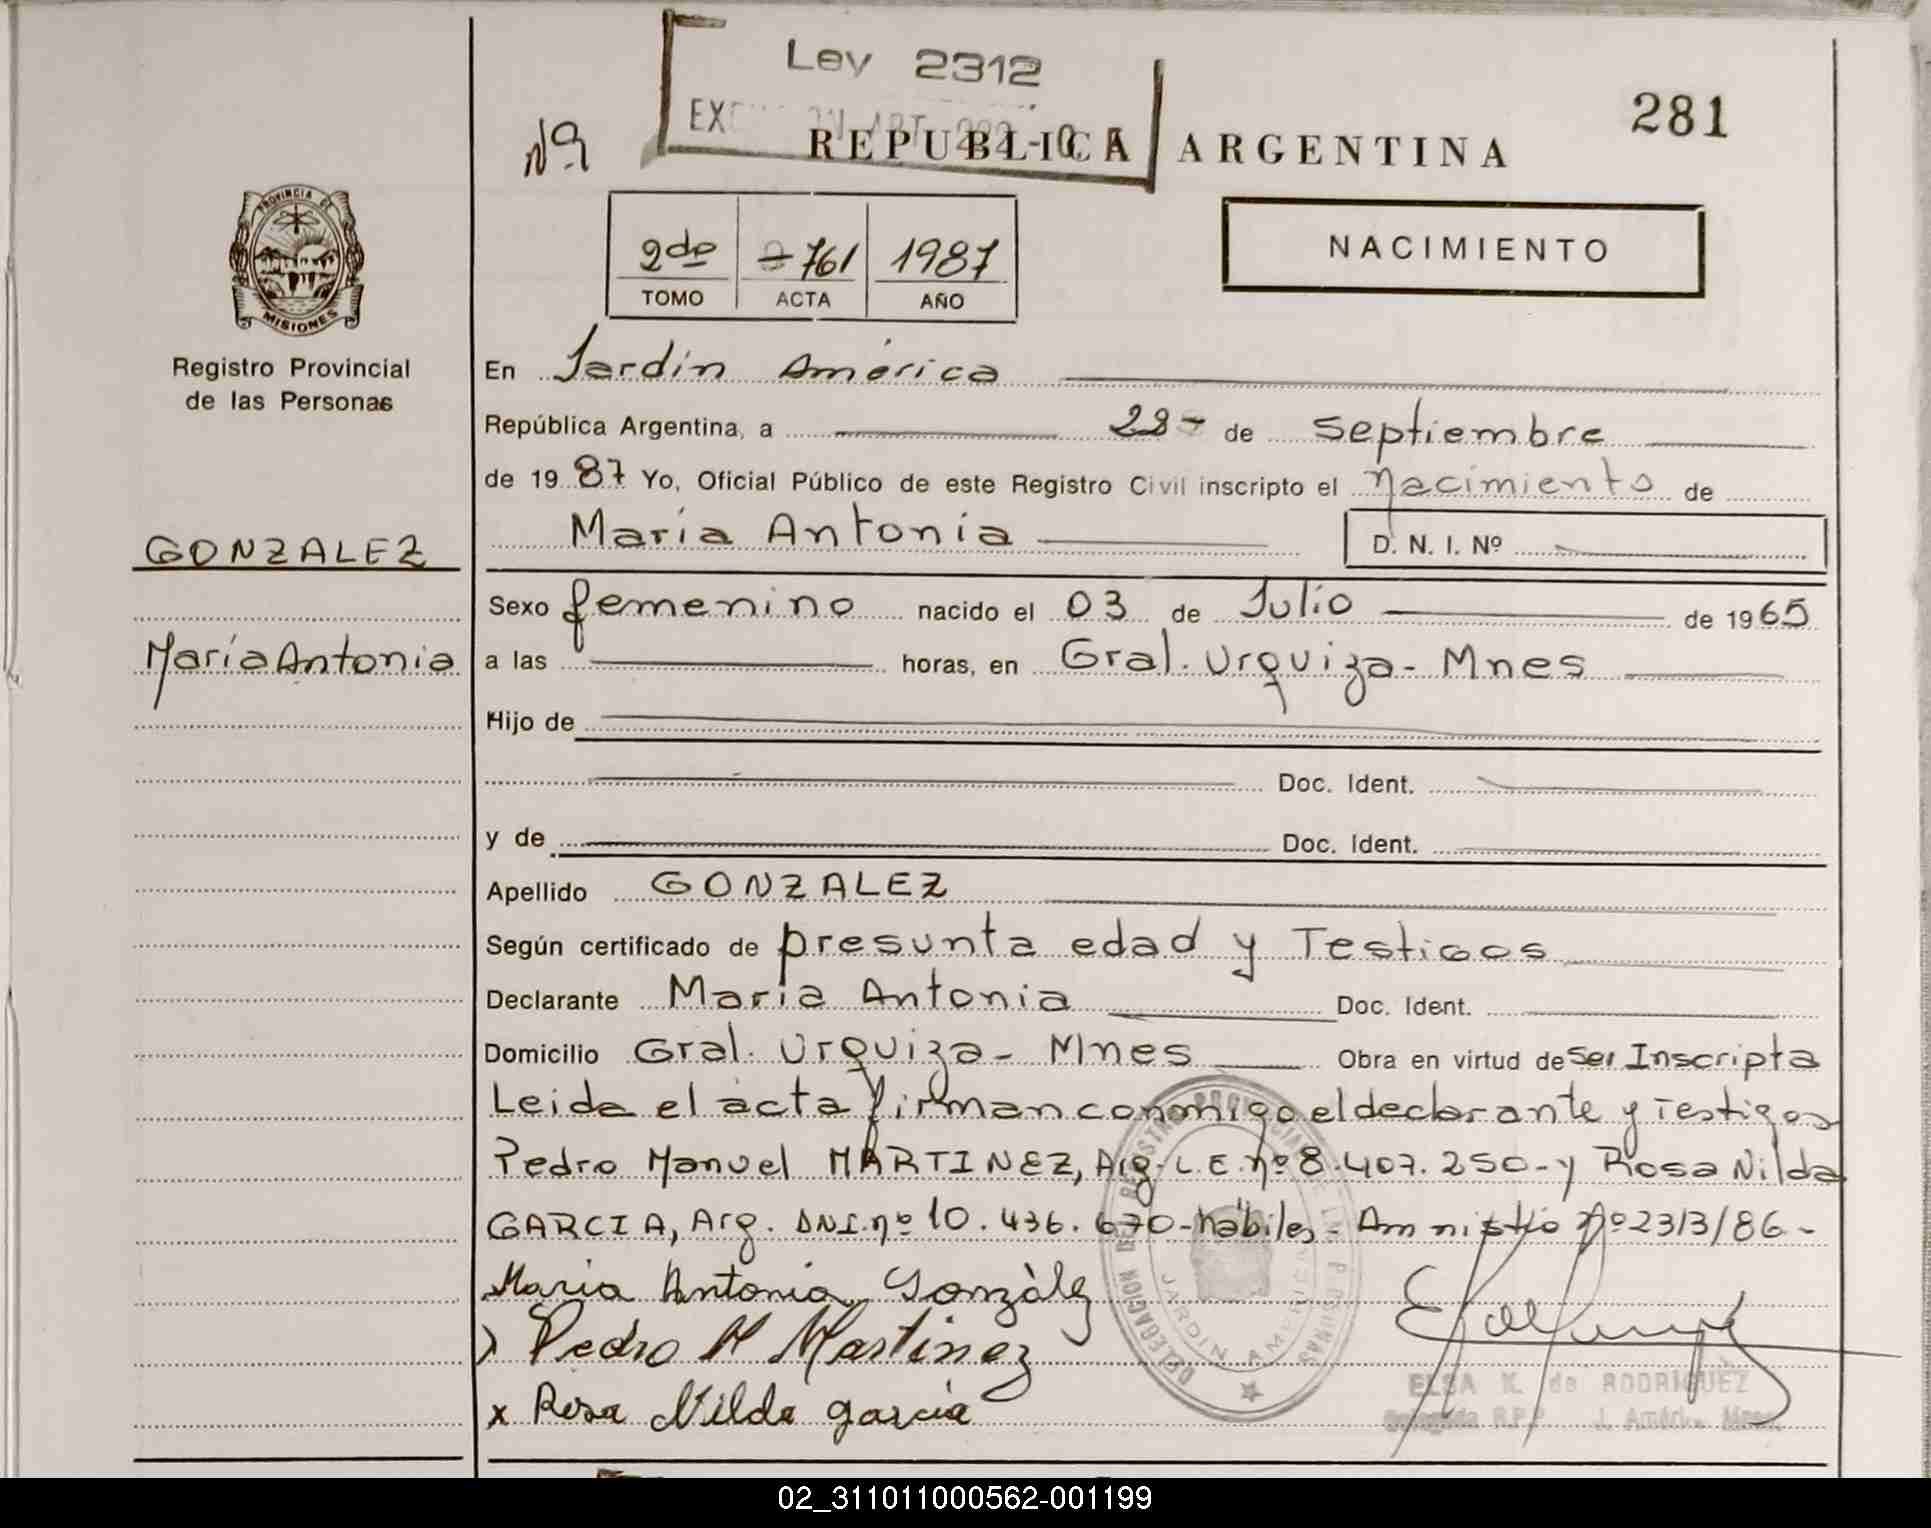 Ley 2312
Nº
REPUBLICA ARGENTINA
281
PROVINCIA DE
MISIONES
2do 761 1987
TOMO ACTA AÑO
NACIMIENTO
Registro Provincial
de las Personas
En Jardín América
República Argentina, a 28- de septiembre
de 1987 Yo, Oficial Público de este Registro Civil inscripto el Nacimiento de
María Antonia D. N. I. Nº
GONZALEZ
María Antonia
Sexo femenino nacido el 03 de Julio de 1965
a las horas, en Gral. Urquiza- Mnes
Hijo de
Doc. Ident.
y de Doc. Ident.
Apellido GONZALEZ
Según certificado de presunta edad y Testigos
Declarante María Antonia Doc. Ident.
Domicilio Gral. Urquiza- Mnes Obra en virtud de Ser Inscripta
Leida el acta firman conmigo el declarante y Testigos
Pedro Manuel MARTINEZ, Arg. L.E. nº 8.407.250- y Rosa Nilda
GARCIA, Arg. DNI. nº 10.436.670- hábiles- Amnistía Nº 2313/86-
Maria Antonia Gonzàlez
Pedro M Martinez
x Rosa Nilda garcia
JARDIN AMERICA
ELSA K. de RODRIGUEZ
Delegada R.P.P. J. América Mnes.
02_311011000562-001199